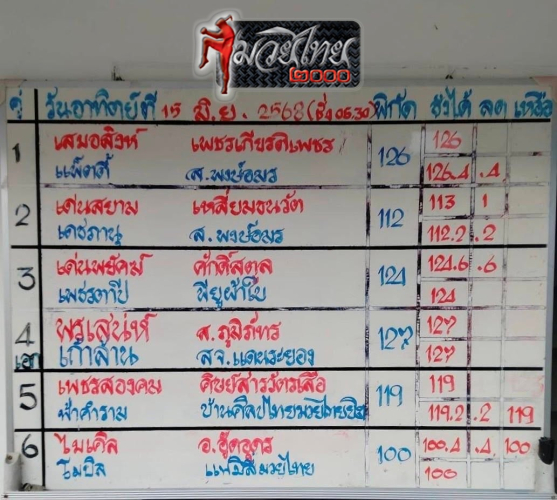 มวยไทย
๒๐๐๐
คู่ วันอาทิตย์ที่ 15 มิ.ย. 2568 (ชั่ง 06.30) พิกัด ชั่งได้ ลด เหลือ
1 เสมอสิงห์ เพชรเกียรติเพชร 126 126
แพ็ตตี้ ส.พงษ์อมร 126.4 .4
2 เด่นสยาม เหลี่ยมธนวัต 112 113 1
เดชภานุ ส.พงษ์อมร 112.2 .2
3 เด่นพยัคฆ์ ศักดิ์สตูล 124 124.6 .6
เพชรตาปี พียูผ้าใบ 124
4 พรเสน่ห์ ส.ภูมิภัทร 127 127
เอก เก้าล้าน สจ.แดนระยอง 127
5 เพชรสองคม ศิษย์สารวัตรเสือ 119 119
ฟ้าคำราม บ้านศิลปไทยมวยไทยยิม 119.2 .2 119
6 ไมเคิล อ.อู๊ดอุดร 100 100.4 .4 100
แฟมิลี่มวยไทย 100